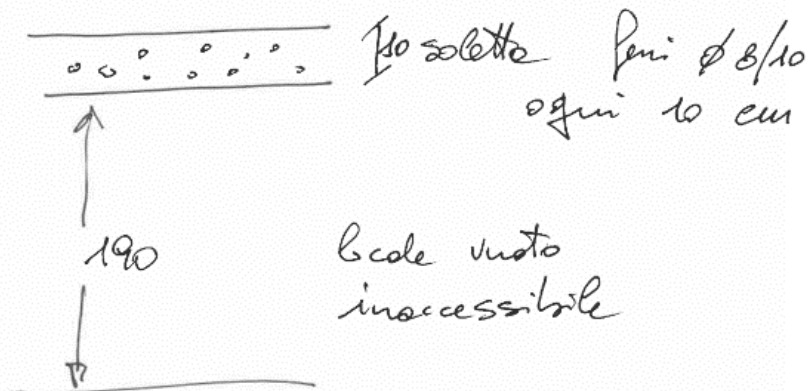 10 soletta ferri ø 8/10
ogni 10 cm
190
locale vuoto
inaccessibile